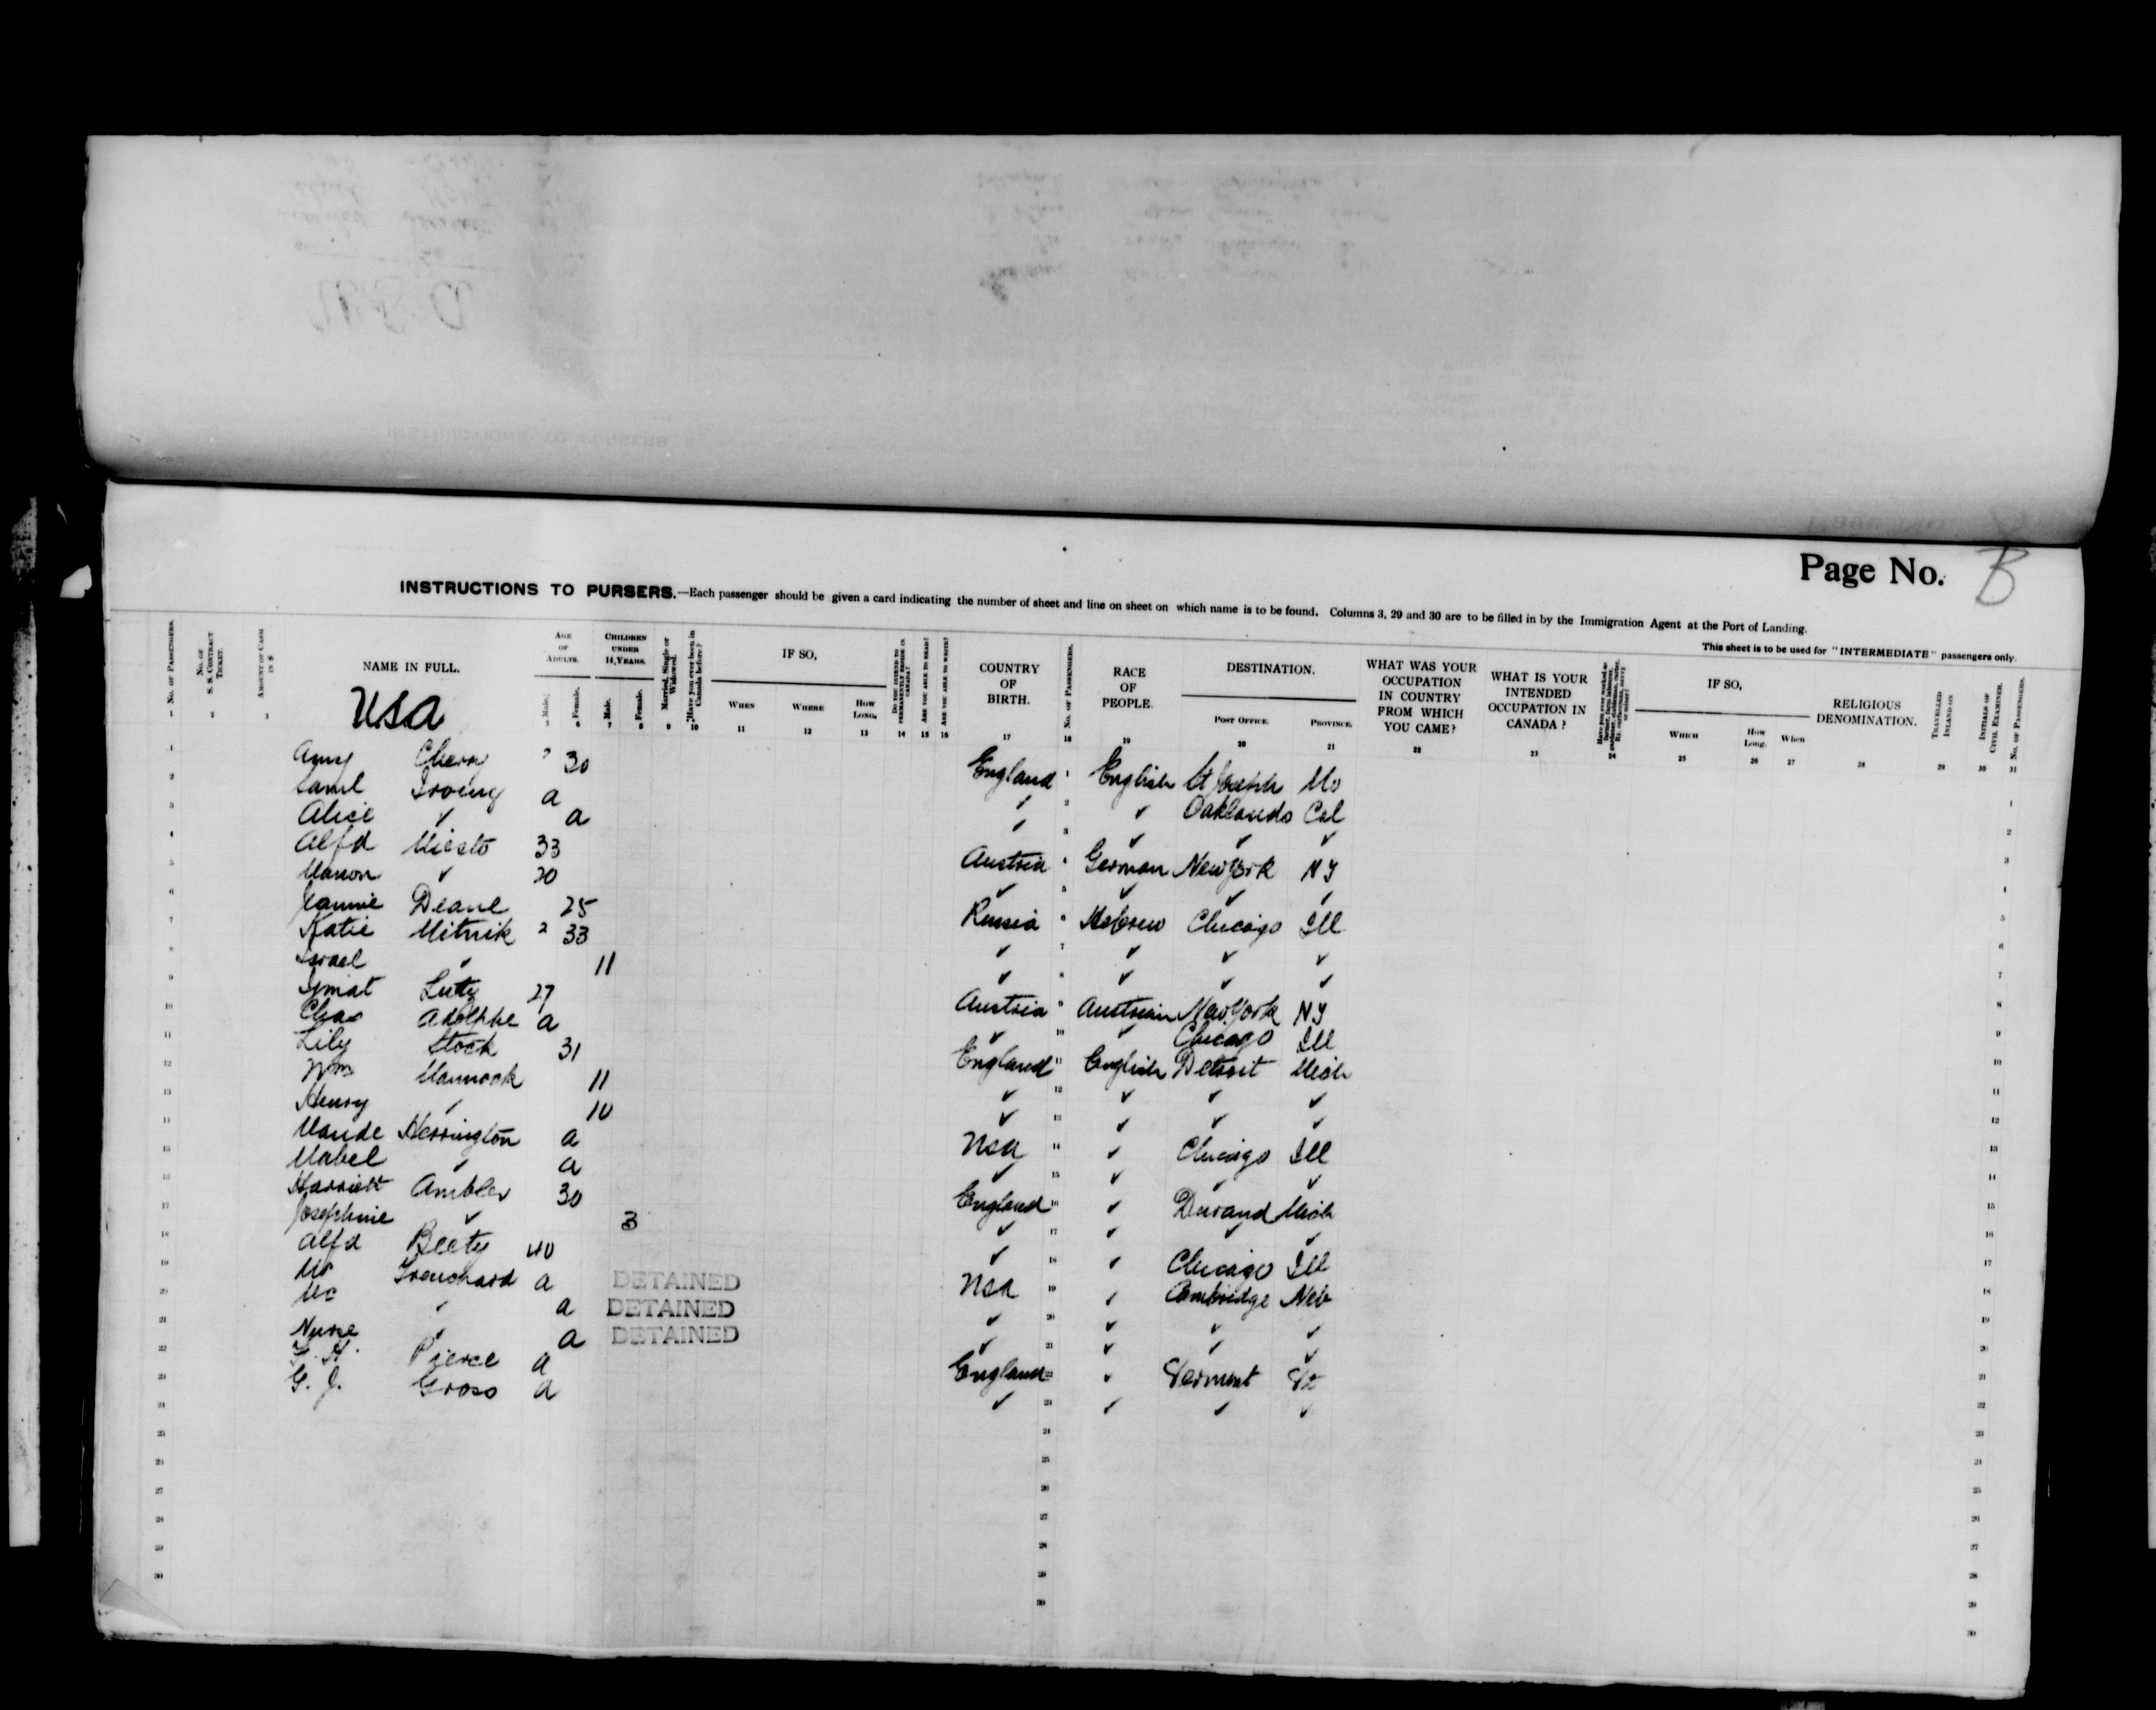 Page No. B
INSTRUCTIONS TO PURSERS.—Each passenger should be given a card indicating the number of sheet and line on sheet on which name is to be found. Columns 3, 29 and 30 are to be filled in by the Immigration Agent at the Port of Landing.
This sheet is to be used for "INTERMEDIATE" passengers only.
No. of Passengers. No. of S. S. Contract Ticket. Amount of Cash in $ NAME IN FULL. Age of Adults. Male. Female. Children under 14 Years. Male. Female. Married, Single or Widowed. Have you ever been in Canada before? IF SO, When Where How Long. Do you intend to permanently reside in Canada? Are you able to read? Are you able to write? COUNTRY OF BIRTH. No. of Passengers. RACE OF PEOPLE. DESTINATION. Post Office. Province. WHAT WAS YOUR OCCUPATION IN COUNTRY FROM WHICH YOU CAME? WHAT IS YOUR INTENDED OCCUPATION IN CANADA? IF SO, Which How Long. When RELIGIOUS DENOMINATION. Travelled Inland on Initials of Civil Examiner. No. of Passengers.
1 2 3 5 6 7 8 9 10 11 12 13 14 15 16 17 18 19 20 21 22 23 24 25 26 27 28 29 30 31
USA
1 Amy Cherry 30 England 1 English St Joseph Mo
2 Saml Irving a ✓ 2 ✓ Oaklands Cal
3 Alice ✓ a ✓ 3 ✓ ✓ ✓
4 Alfd Miesto 33 Austria 4 German New York NY
5 Manon ✓ 20 ✓ 5 ✓ ✓ ✓
6 Jeannie Deane 25 Russia 6 Hebrew Chicago Ill
7 Katie Mitnik 2 33 ✓ 7 ✓ ✓ ✓
8 Israel ✓ 11 ✓ 8 ✓ ✓ ✓
9 Luty 27 Austria 9 Austrian New York NY
10 Chas Adolphe a ✓ 10 ✓ Chicago Ill
11 Lily Stock 31 England 11 English Detroit Mich
12 Wm Mannock 11 ✓ 12 ✓ ✓ ✓
13 Henry ✓ 10 ✓ 13 ✓ ✓ ✓
14 Maude Herrington a USA 14 ✓ Chicago Ill
15 Mabel ✓ a ✓ 15 ✓ ✓ ✓
16 Harriett Ambler 30 England 16 ✓ Durand Mich
17 Josephine ✓ 3 ✓ 17 ✓ ✓ ✓
18 Alfd Beety 40 ✓ 18 ✓ Chicago Ill
19 Mr Trenchard a DETAINED USA 19 ✓ Cambridge Neb
20 ✓ a DETAINED ✓ 20 ✓ ✓ ✓
21 Nurse ✓ a DETAINED ✓ 21 ✓ ✓ ✓
22 Pierce a England 22 ✓ Vermont Vt
23 G. J. Gross a ✓ 23 ✓ ✓ ✓
24 24
25 25
26 26
27 27
28 28
29 29
30 30